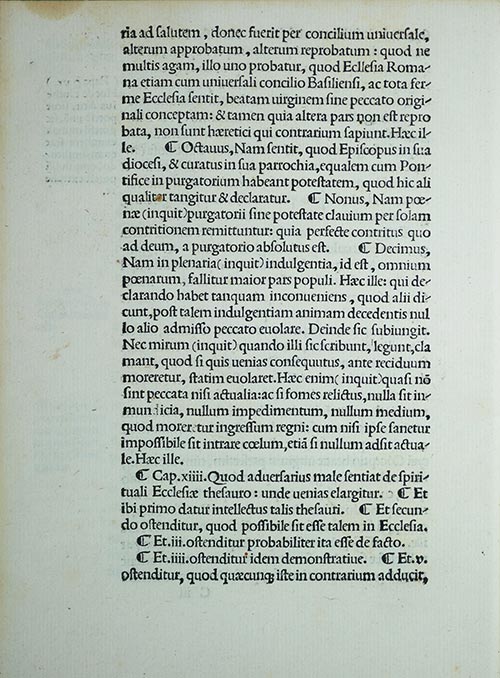 ria ad salutem, donec fuerit per concilium uniuersale,
alterum approbatum, alterum reprobatum: quod ne
multis agam, illo uno probatur, quod Ecllesia Roma-
na etiam cum uniuersali concilio Basiliensi, ac tota fer-
me Ecclesia sentit, beatam uirginem sine peccato origi-
nali conceptam: & tamen quia altera pars non est repro
bata, non sunt hæretici qui contrarium sapiunt. Hæc il-
le. ¶ Octauus, Nam sentit, quod Episcopus in sua
diocesi, & curatus in sua parrochia, equalem cum Pon-
tifice in purgatorium habeant potestatem, quod hic ali
qualiter tangitur & declaratur. ¶ Nonus, Nam pœ-
næ (inquit) purgatorii sine potestate clauium per solam
contritionem remittuntur: quia perfecte contritus quo
ad deum, a purgatorio absolutus est. ¶ Decimus,
Nam in plenaria (inquit) indulgentia, id est, omnium
pœnarum, fallitur maior pars populi. Hæc ille: qui de-
clarando habet tanquam inconueniens, quod alii di-
cunt, post talem indulgentiam animam decedentis nul
lo alio admisso peccato euolare. Deinde sic subiungit.
Nec mirum (inquit) quando illi sic scribunt, legunt, cla
mant, quod si quis uenias consequutus, ante reciduum
moreretur, statim euolaret. Hæc enim (inquit) quasi nō
sint peccata nisi actualia: ac si fomes relictus, nulla sit im-
mundicia, nullum impedimentum, nullum medium,
quod moretur ingressum regni: cum nisi ipse sanetur
impossibile sit intrare cœlum, etiā si nullum adsit actua-
le. Hæc ille.
¶ Cap. xiiii. Quod aduersarius male sentiat de spiri-
tuali Ecclesiæ thesauro: unde uenias elargitur. ¶ Et
ibi primo datur intellectus talis thesauri. ¶ Et secun-
do ostenditur, quod possibile sit esse talem in Ecclesia.
¶ Et .iii. ostenditur probabiliter ita esse de facto.
¶ Et .iiii. ostenditur idem demonstratiue. ¶ Et .v.
ostenditur, quod quæcunq; iste in contrarium adducit,